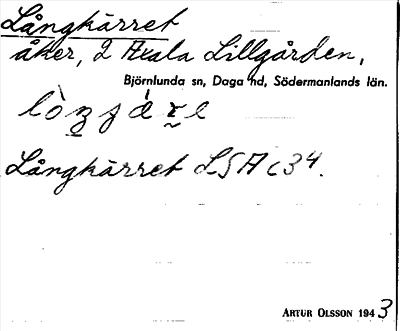 Långkärret
åker, 2 Axala Lillgården,
Björnlunda sn, Daga hd, Södermanlands län.
Långkärret LSA c34.
ARTUR OLSSON 1943